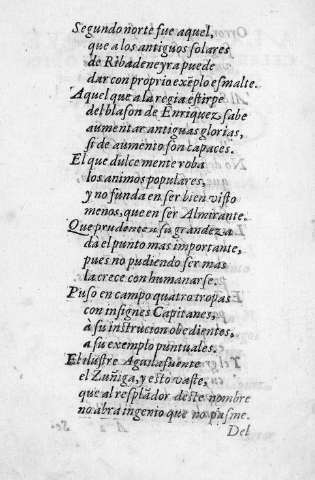 Segundo norte fue aquel,
que a los antiguos solares
de Ribadeneyra puede
dar con proprio exẽplo esmalte.
Aquel que a la regia estirpe
del blason de Enriquez, sabe
aumentar antiguas glorias,
si de aumento son capaces.
El que dulcemente roba
los animos populares,
y no funda en ser bien visto
menos, que en ser Almirante.
Que prudente a su grandeza
dà el punto mas importante,
pues no pudiendo ser mas
la crece con humanarse.
Puso en campo quatro tropas
con insignes Capitanes,
à su instrucion obedientes,
a su exemplo puntuales.
El ilustre Aguilafuente
el Zuñiga, y esto vaste,
que al resplãdor deste nombre
no abra ingenio que no pasme.
Del